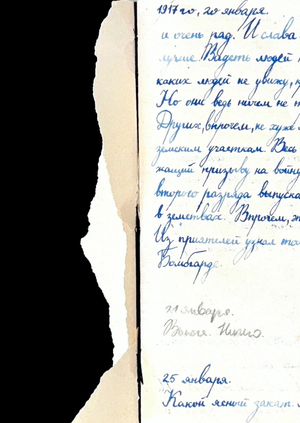 1917 го, 20 января.
и очень рад. И слава
лучше. Видеть людей
каких людей не увижу,
Но они ведь ничем не
Других, впрочем, не хуже
земским участкам. Весь
жащий призыву на войну
второго разряда выпуска
в земствах. Впрочем,
Из приятелей узнал
Бомгарде.
21 января.
Вьюга. Ничего.
25 января.
Какой ясный закат